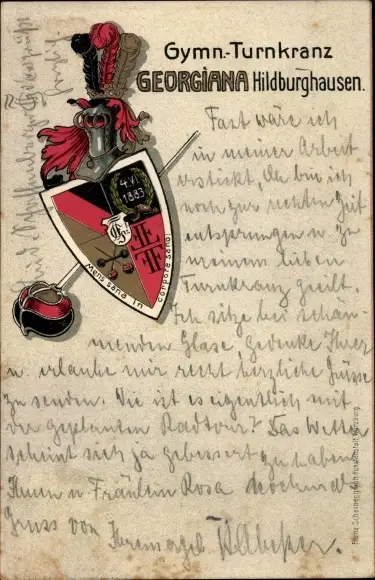 Gymn.-Turnkranz
GEORGIANA Hildburghausen.
4. VI.
1883
F F
T T
Mens sana in
corpore sano!
Fast wäre ich
in meiner Arbeit
erstickt, da bin ich
noch zur rechten Zeit
entsprungen u. zu
meinem lieben
Turnkranz geeilt.
Ich sitze bei schäu-
menden Glase, gedenke Ihrer
u. erlaube mir recht herzliche Grüsse
zu senden. Wie ist es eigentlich mit
der geplanten Radtour? Das Wetter
scheint sich ja gebessert zu haben.
Ihnen u. Fräulein Rosa nochmal
Gruss von Ihrem ergeb.